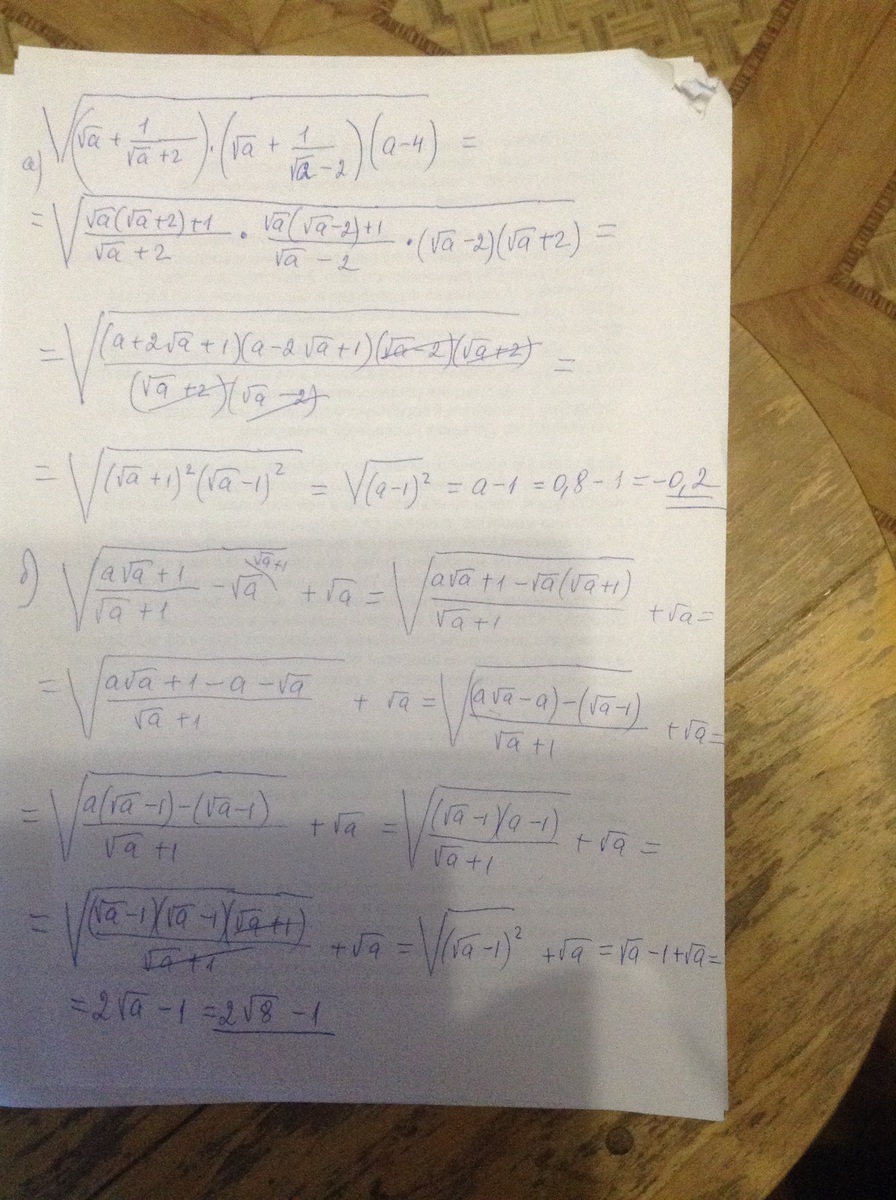 а) √((√a + 1/(√a + 2)) · (√a + 1/(√a - 2)) (a - 4)) =
= √((√a(√a+2)+1)/(√a + 2) · (√a(√a-2)+1)/(√a - 2) · (√a - 2)(√a + 2)) =
= √(((a + 2√a + 1)(a - 2√a + 1)(√a - 2)(√a + 2))/((√a + 2)(√a - 2))) =
= √((√a + 1)²(√a - 1)²) = √(a-1)² = a - 1 = 0,8 - 1 = -0,2
б) √((a√a + 1)/(√a + 1) - √a^(√a+1)) + √a = √((a√a + 1 - √a(√a+1))/(√a + 1)) + √a =
= √((a√a + 1 - a - √a)/(√a + 1)) + √a = √(((a√a - a) - (√a - 1))/(√a + 1)) + √a =
= √((a(√a - 1) - (√a - 1))/(√a + 1)) + √a = √(((√a - 1)(a - 1))/(√a + 1)) + √a =
= √(((√a - 1)(√a - 1)(√a + 1))/(√a + 1)) + √a = √(√a - 1)² + √a = √a - 1 + √a =
= 2√a - 1 = 2√8 - 1